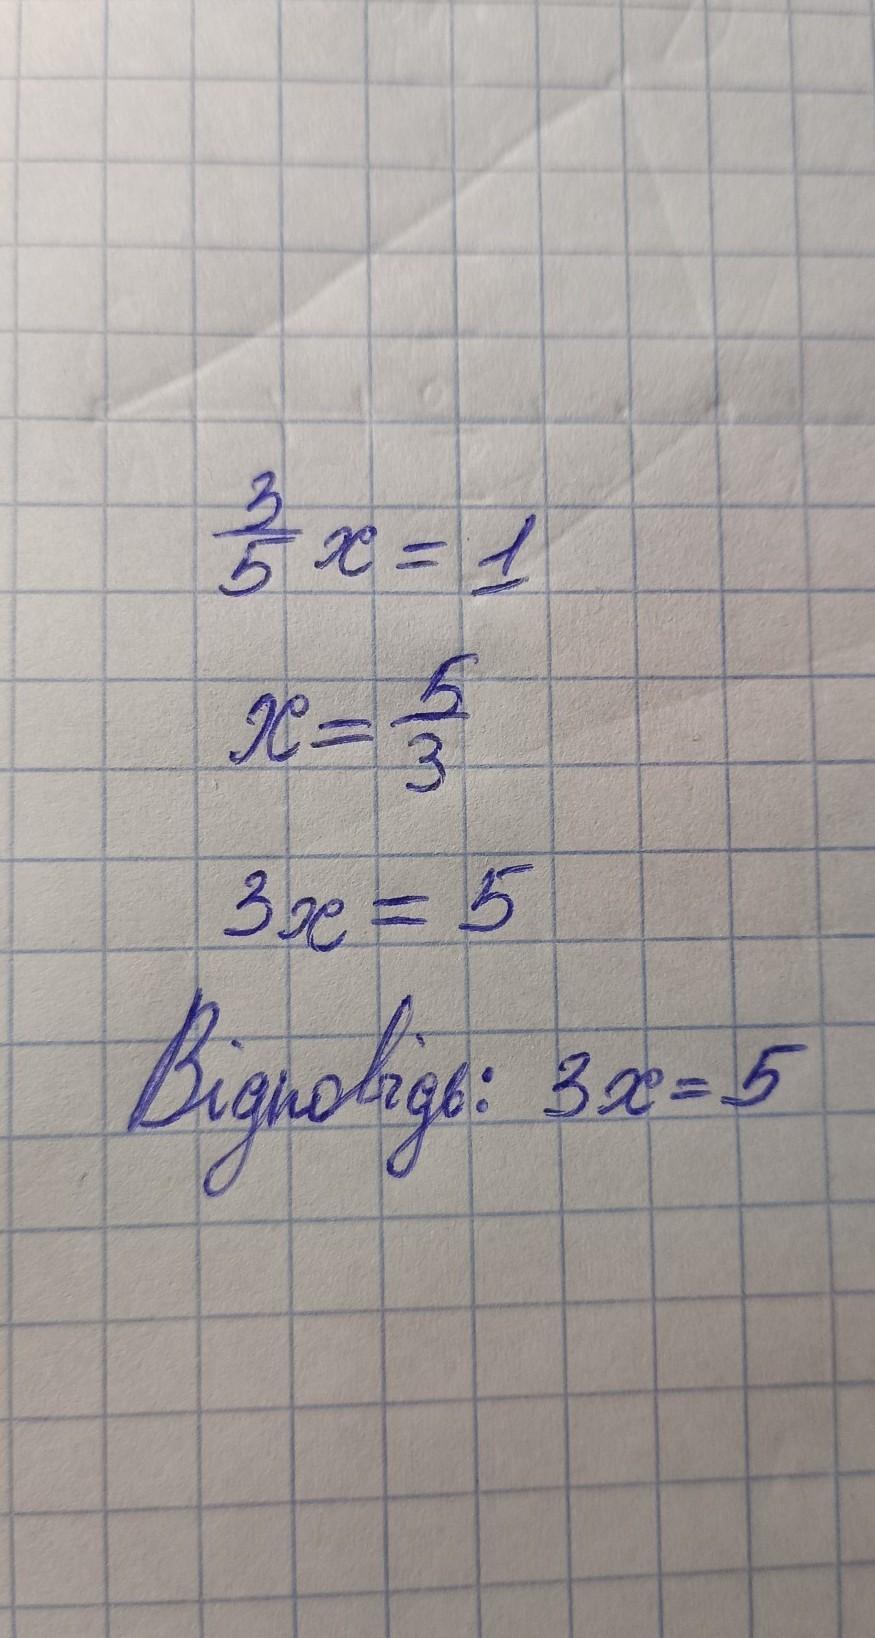 3/5 x = 1
x = 5/3
3x = 5
Відповідь: 3x = 5